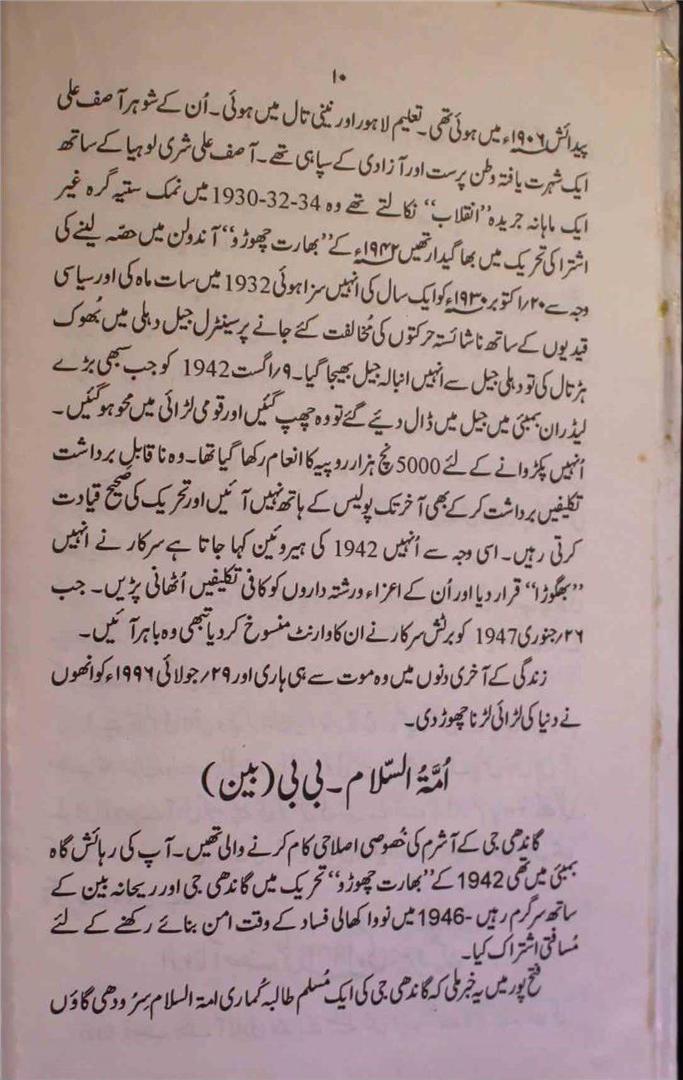 ۱۰
پیدائش ۱۹۰۶ء میں ہوئی تھی۔ تعلیم لاہور اور نینی تال میں ہوئی۔ اُن کے شوہر آصف علی
ایک شہرت یافتہ وطن پرست اور آزادی کے سپاہی تھے۔ آصف علی شری لوہیا کے ساتھ
ایک ماہانہ جریدہ ”انقلاب“ نکالتے تھے وہ 34-32-1930 میں نمک ستیہ گرہ غیر
اشتراکی تحریک میں بھاگیدار تھیں ۱۹۴۲ء کے ”بھارت چھوڑو“ آندولن میں حصّہ لینے کی
وجہ سے ۲۰/اکتوبر ۱۹۳۰ء کو ایک سال کی انہیں سزا ہوئی 1932 میں سات ماہ کی اور سیاسی
قیدیوں کے ساتھ ناشائستہ حرکتوں کی مُخالفت کئے جانے پر سینٹرل جیل دہلی میں بُھوک
ہڑتال کی تو دہلی جیل سے انہیں انبالہ جیل بھیجا گیا۔ ۹/اگست 1942 کو جب سبھی بڑے
لیڈران بمبئی میں جیل میں ڈال دیئے گئے تو وہ چھپ گئیں اور قومی لڑائی میں محو ہوگئیں۔
اُنہیں پکڑوانے کے لئے 5000 نچ ہزار روپیہ کا انعام رکھا گیا تھا۔ وہ ناقابلِ برداشت
تکلیفیں برداشت کرکے بھی آخر تک پولیس کے ہاتھ نہیں آئیں اور تحریک کی صحیح قیادت
کرتی رہیں۔ اسی وجہ سے اُنہیں 1942 کی ہیروئین کہا جاتا ہے سرکار نے انہیں
”بھگوڑا“ قرار دیا اور اُن کے اعزاء ورشتہ داروں کو کافی تکلیفیں اُٹھانی پڑیں۔ جب
۲۶/جنوری 1947 کو برٹش سرکار نے ان کا وارنٹ منسوخ کردیا تبھی وہ باہر آئیں۔
زندگی کے آخری دنوں میں وہ موت سے ہی ہاری اور ۲۹/جولائی ۱۹۹۶ء کو انھوں
نے دنیا کی لڑائی لڑنا چھوڑ دی۔
اُمَّۃُ السّلام۔ بی بی (بین)
گاندھی جی کے آشرم کی خُصوصی اصلاحی کام کرنے والی تھیں۔ آپ کی رہائش گاہ
بمبئی میں تھی 1942 کے ”بھارت چھوڑو“ تحریک میں گاندھی جی اور ریحانہ بین کے
ساتھ سرگرم رہیں -1946 میں نوواکھالی فساد کے وقت امن بنائے رکھنے کے لئے
مُسافتی اشتراک کیا۔
فتح پور میں یہ خبر ملی کہ گاندھی جی کی ایک مُسلم طالبہ کُماری امۃ السلام سِرُودھی گاؤں